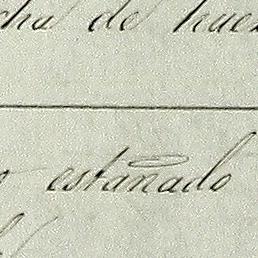 cha de hue
o estañado